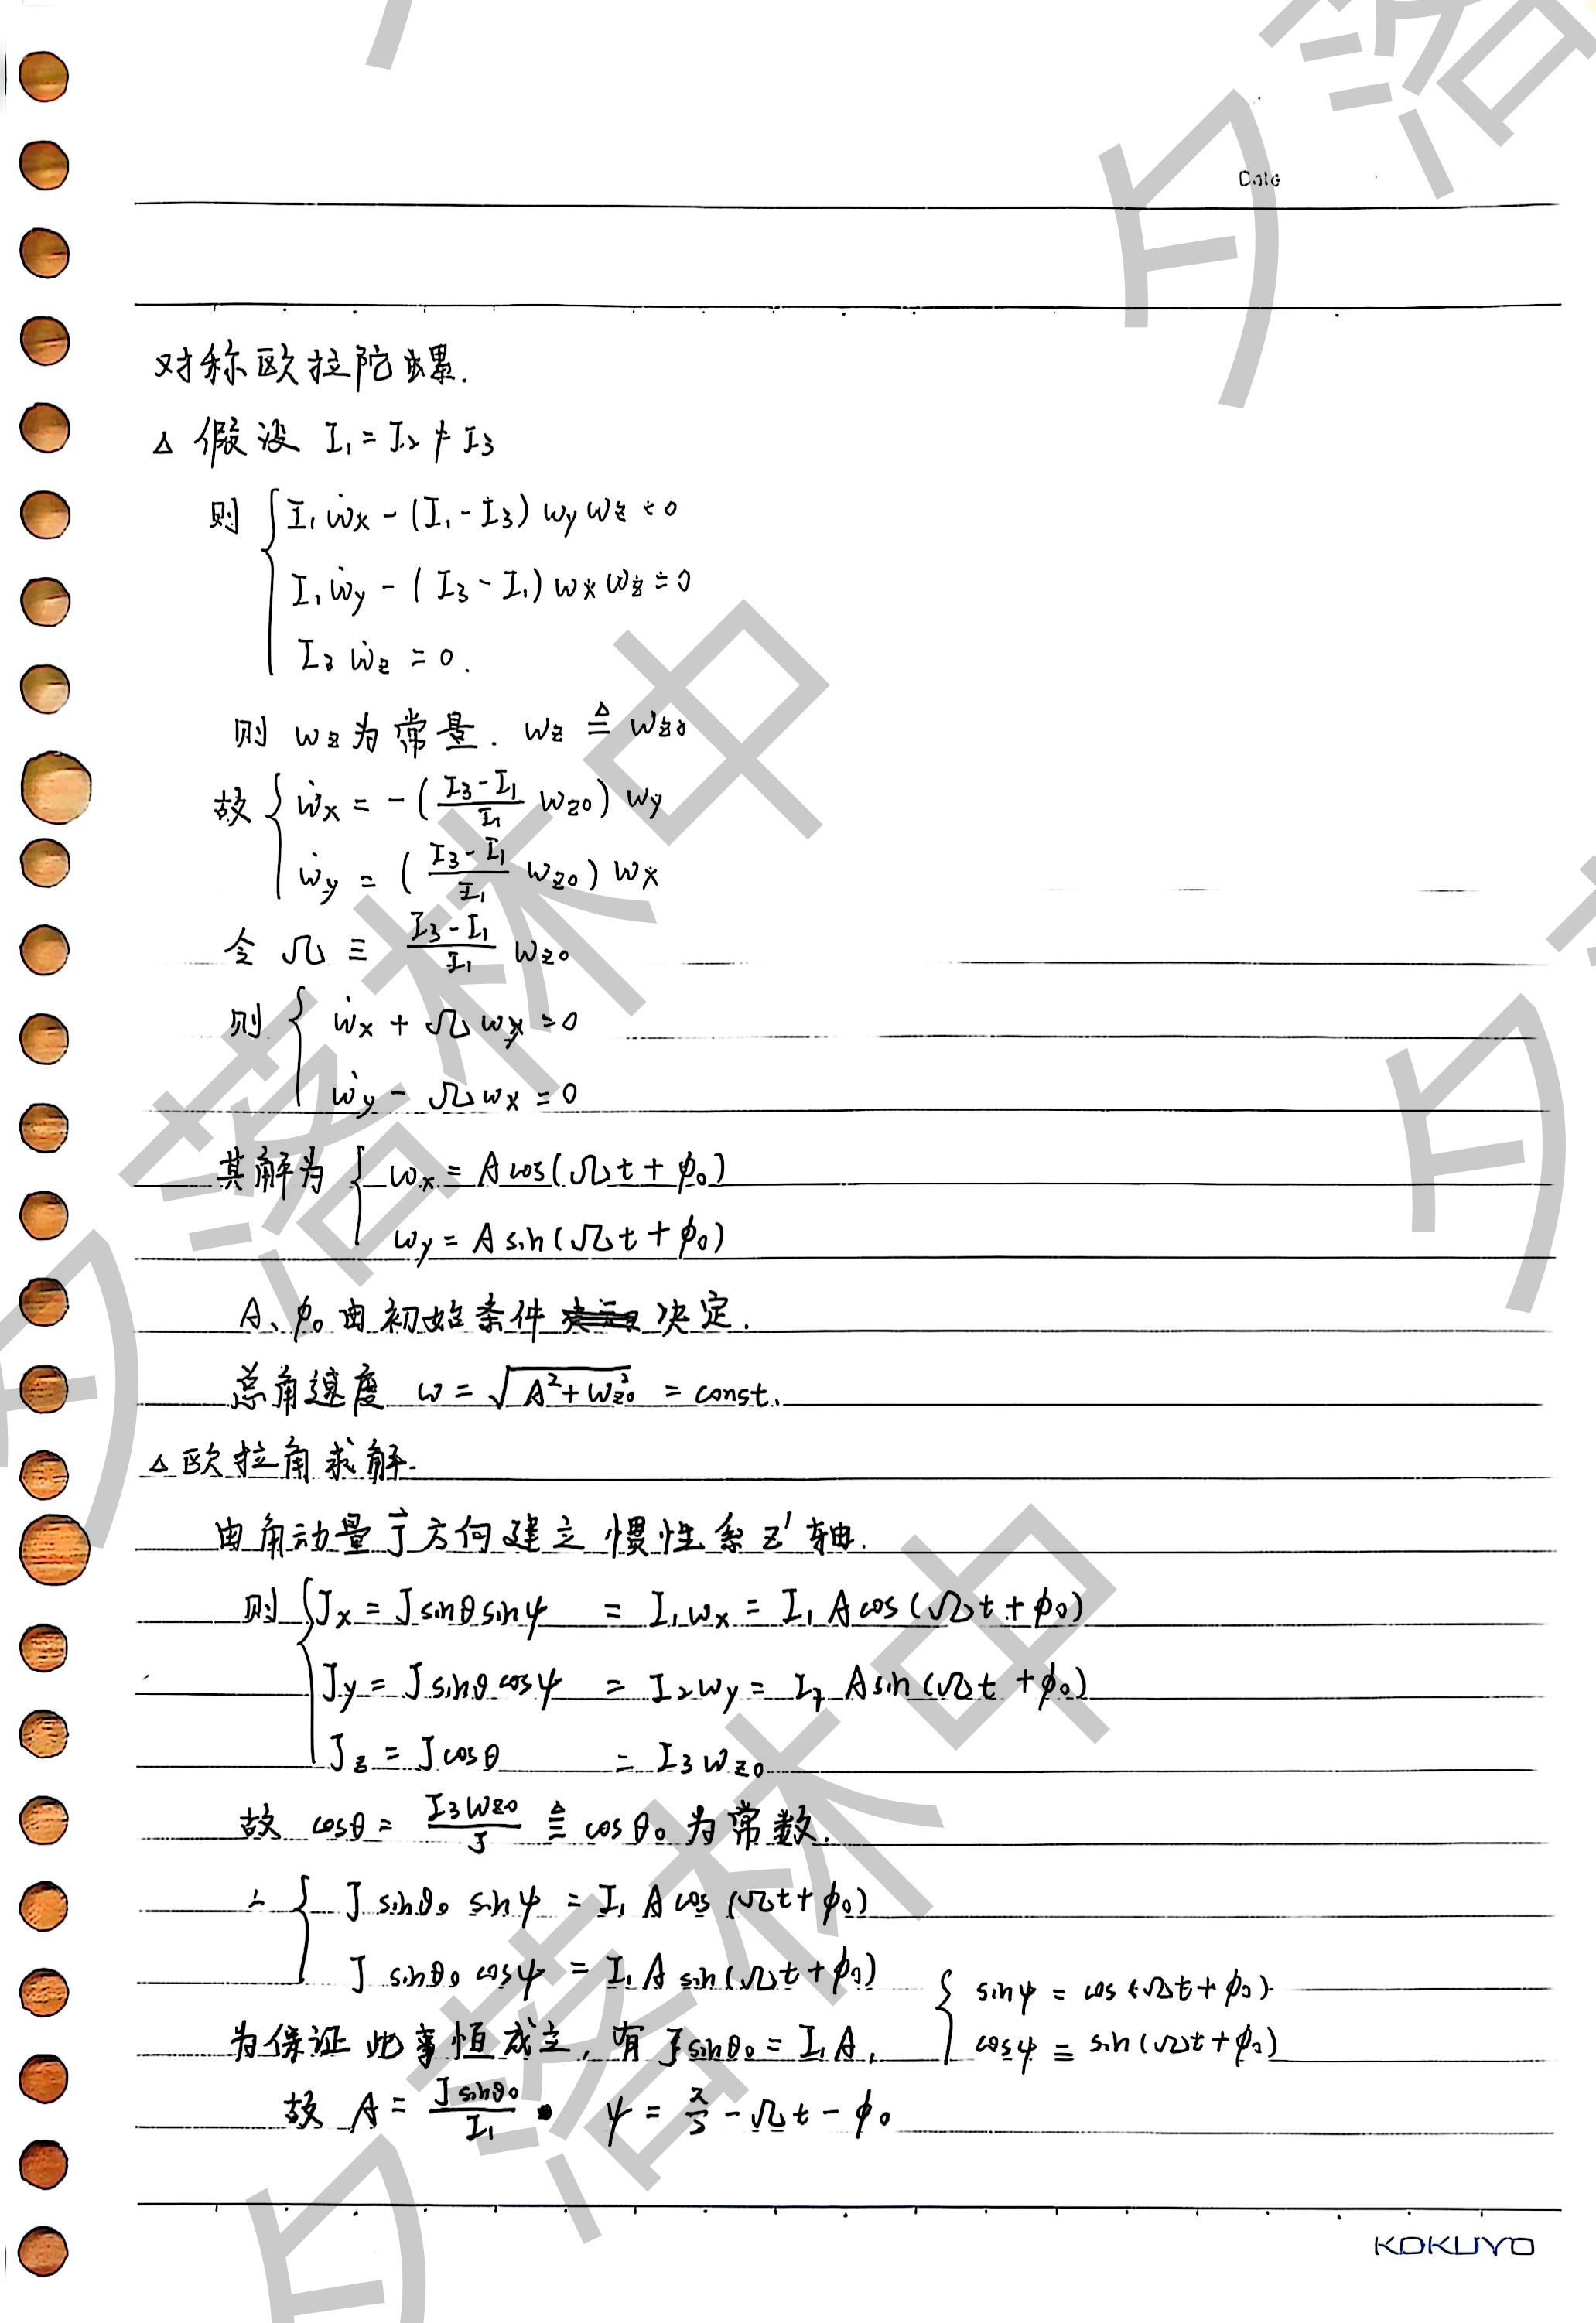 Date
对称欧拉陀螺.
△ 假设 I₁ = I₂ ≠ I₃
则 { I₁ ω̇x - (I₁ - I₃) ωy ωz = 0
I₁ ω̇y - (I₃ - I₁) ωx ωz = 0
I₃ ω̇z = 0.
则 ωz 为常量. ωz ≜ ωz0
故 { ω̇x = -(\frac{I₃-I₁}{I₁} ωz0) ωy
ω̇y = (\frac{I₃-I₁}{I₁} ωz0) ωx
令 Ω ≡ \frac{I₃-I₁}{I₁} ωz0
则 { ω̇x + Ω ωy = 0
ω̇y - Ω ωx = 0
其解为 { ωx = A cos(Ωt + φ₀)
ωy = A sin(Ωt + φ₀)
A、φ₀ 由初始条件 决定.
总角速度 ω = √(A² + ωz0²) = const.
△ 欧拉角求解.
由角动量 J⃗ 方向建立惯性系 z' 轴.
则 { Jx = J sinθ sinψ = I₁ ωx = I₁ A cos(Ωt + φ₀)
Jy = J sinθ cosψ = I₂ ωy = I₂ A sin(Ωt + φ₀)
Jz = J cosθ = I₃ ωz0
故 cosθ = \frac{I₃ωz0}{J} ≜ cosθ₀ 为常数.
∴ { J sinθ₀ sinψ = I₁ A cos(Ωt + φ₀)
J sinθ₀ cosψ = I₁ A sin(Ωt + φ₀)
为保证此事恒成立, 有 J sinθ₀ = I₁ A, { sinψ = cos(Ωt + φ₀)
cosψ = sin(Ωt + φ₀)
故 A = \frac{J sinθ₀}{I₁} . ψ = \frac{π}{2} - Ωt - φ₀
KOKUYO
夕落林中
夕落林中
夕落
夕